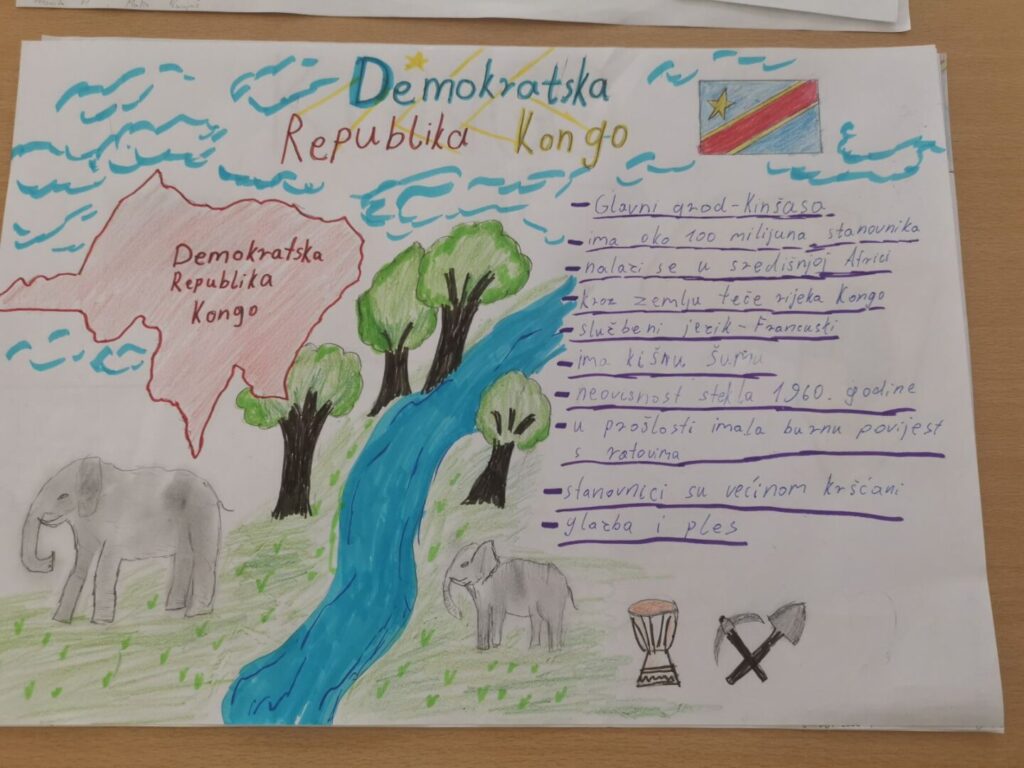 Demokratska
Republika Kongo
Demokratska
Republika
Kongo
- Glavni grad - Kinšasa
- ima oko 100 milijuna stanovnika
- nalazi se u središnjoj Africi
- kroz zemlju teče rijeka Kongo
- službeni jezik - Francuski
- ima kišnu šumu
- neovisnost stekla 1960. godine
- u prošlosti imala burnu povijest
s ratovima
- stanovnici su većinom kršćani
- glazba i ples